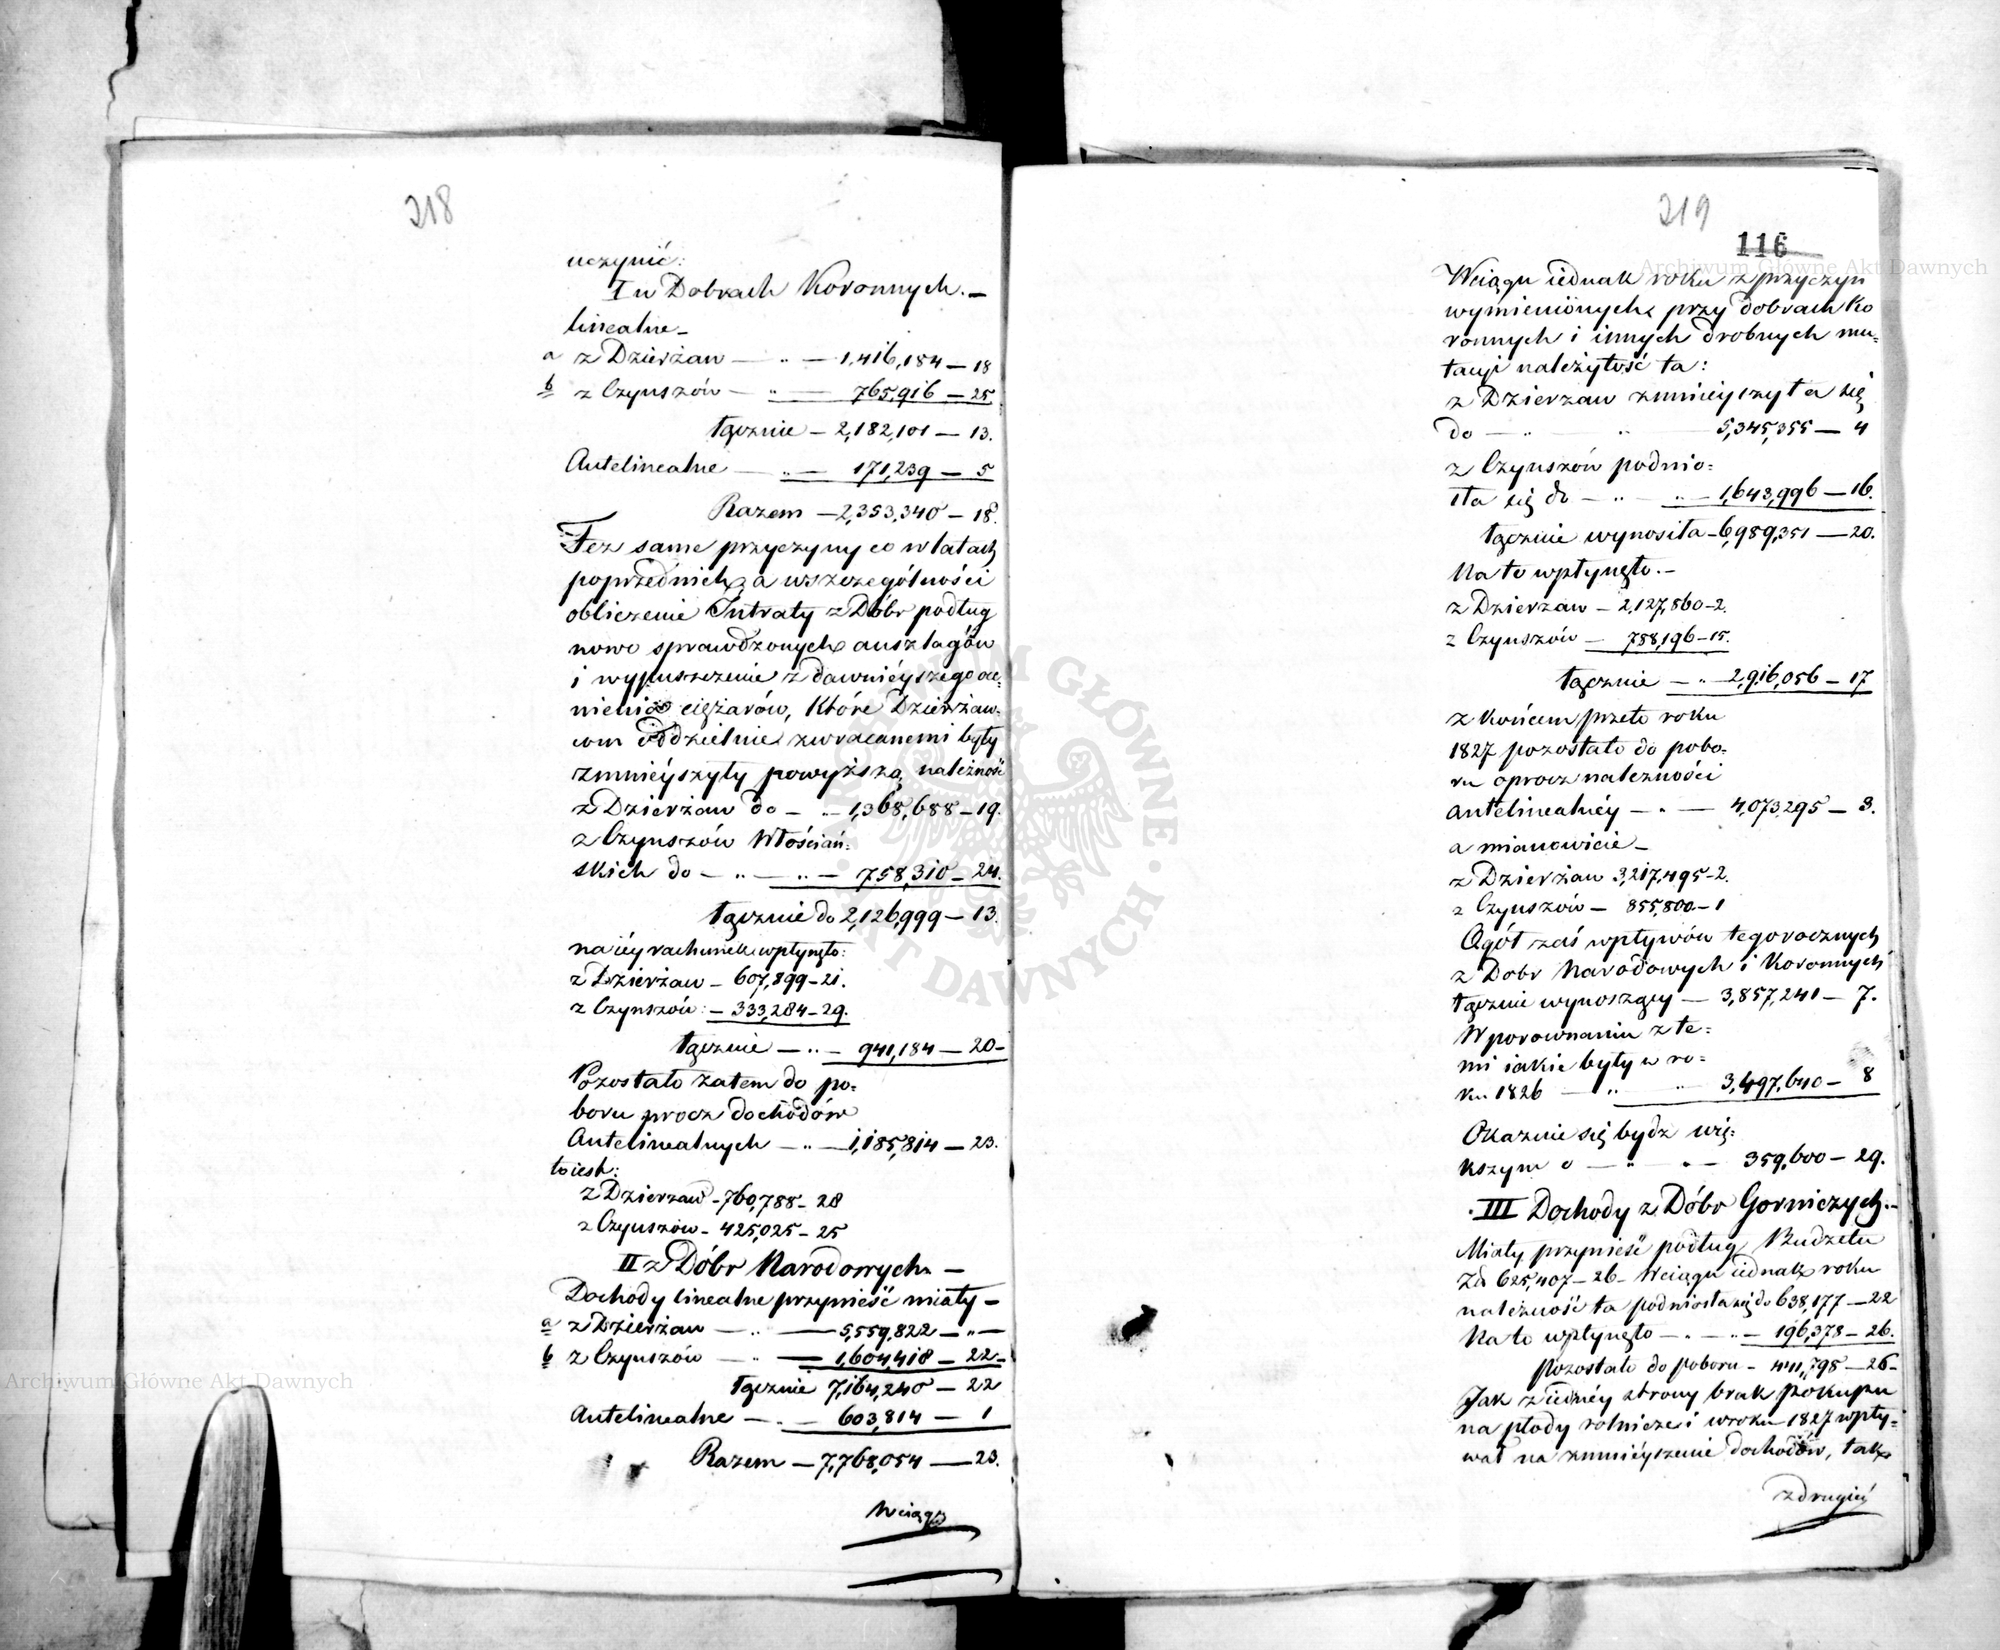 218
uczynić:
I w Dobrach Koronnych. —
linealne —
a z Dzierżaw — „ — 1,416,184 — 18
b z Czynszów — „ — 765,916 — 25
łącznie — 2,182,101 — 13.
Antelinealne — „ — 171,239 — 5
Razem — 2,353,340 — 18.
Też same przyczyny co w latach
poprzednich, a w szczególności
obliczenie Intraty z Dóbr podług
nowo sprawdzonych anszlagów
i wypuszczenie z dawnieyszego oce=
nienia ciężarów, które Dzierżaw=
com oddzielnie zwracanemi były
zmnieyszyły powyższą należność
z Dzierżaw do — „ — 1,368,688 — 19.
z Czynszów Włościań=
skich do — „ — „ — 758,310 — 24.
łącznie do 2,126,999 — 13.
na iéy rachunek wpłynęło:
z Dzierżaw — 607,899 — 21.
z Czynszów: — 333,284 — 29.
łącznie — „ — 941,184 — 20 —
Pozostało zatem do po=
boru procz dochodów
Antelinealnych — „ — 1,185,814 — 23.
to iest:
z Dzierzaw — 760,788 — 28
z Czynszów — 425,025 — 25
II z Dóbr Narodowych. —
Dochody linealne przynieść miały —
a z Dzierżaw — „ — 5,559,822 — „ —
b z Czynszów — „ — 1,604,418 — 22 —
łącznie 7,164,240 — 22
Antelinealne — „ — 603,814 — 1
Razem — 7,768,054 — 23.
Wciągu
219
116
Wciągu iednak roku z przyczyn
wymienionych przy dobrach Ko
ronnych i innych drobnych mu=
tacyi należytość ta:
z Dzierzaw zmnieyszyła się
do — „ „ — 5,345,355 — 4
z Czynszów podnio=
sła się do — „ — „ — 1,643,996 — 16.
łącznie wynosiła — 6,989,351 — 20.
Na to wpłynęło. —
z Dzierzaw — 2,127,860 — 2.
z Czynszów — 758,196 — 15.
łącznie — „ — 2,916,056 — 17
z końcem przeto roku
1827 pozostało do pobo=
ru oprocz należności
antelinealnéy — „ — 4,073,295 — 3.
a mianowicie —
z Dzierżaw 3,217,495 — 2.
z Czynszów — 855,800 — 1
Ogół zaś wpływów tegorocznych
z Dobr Narodowych i Koronnych
łącznie wynoszący — 3,857,241 — 7.
W porownaniu z te=
mi iakie były w ro=
ku 1826 — „ „ — 3,497,640 — 8
Okazuie się bydz wię=
kszym o — „ — „ — 359,600 — 29.
III Dochody z Dóbr Gorniczych. —
Miały przynieść podług Budzetu
Zł 625,407 — 26 — Wciągu iednak roku
należność ta podniosła się do 638,177 — 22
Na to wpłynęło — „ — „ — 196,378 — 26.
pozostało do poboru — 441,798 — 26 —
Jak z iednéy strony brak pokupu
na płody rolnicze i w roku 1827 wpły=
wał na zmnieyszenie dochodów, tak
z drugiéy
Archiwum Główne Akt Dawnych
Archiwum Główne Akt Dawnych
ARCHIWUM GŁÓWNE AKT DAWNYCH